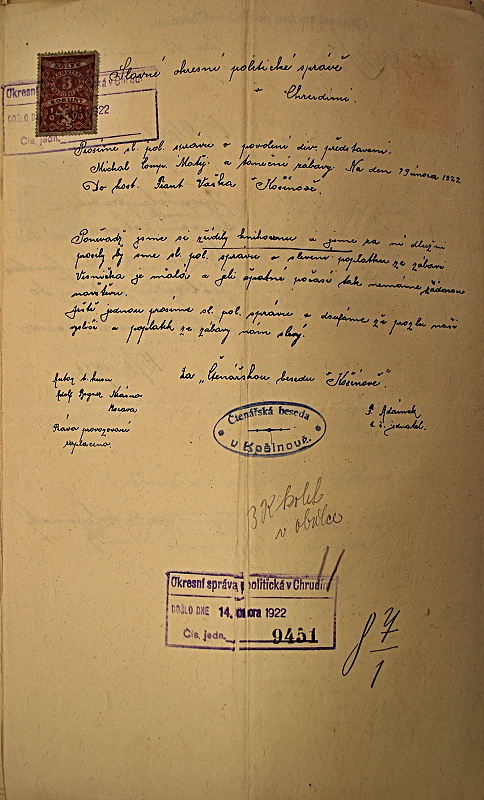 Slavné okresní politické správě
v Chrudimi.
Okresní
DOŠLO DNE 1922
Čís. jedn.
Prosíme sl. pol. správu o povolení div. představení.
Michal Matěj a taneční zábavy. Na den 19 února 1922
Do host. Frant Vaška v Košinově.
Poněvadž jsme si zřídily knihovnu a jsme za ni dlužni
prosily by sme sl. pol. správu o slevení poplatku ze zábavi
Vesnička je malá a jeli špatné počasí tak nemáme žádnou
návštěvu.
Ještě jednou prosíme sl. pol. správu a doufáme že
a poplatk ze zábavy nám slevý.
Za „Čtenářskou besedu v Košinově.
Adolf Bogner
Morava
Práva provozovací
zaplacena.
Čtenářská beseda
v Košinově.
F Adámek
t. č. jednatel.
3 K kolek
v obálce
Okresní správa politická v Chrudimi
DOŠLO DNE 14. února 1922
Čís. jedn. 9451